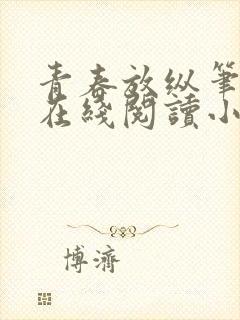 青春放纵笔
在綫閱讀小
博濟